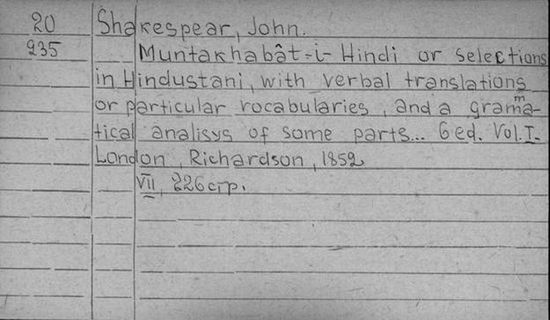 20 Shakespear, John.
235 Muntakhabât-i-Hindi or selections
in Hindustani, with verbal translations
or particular vocabularies, and a gramma-
tical analisys of some parts... 6 ed. Vol. I.
London, Richardson, 1852
VII, 226 стр.